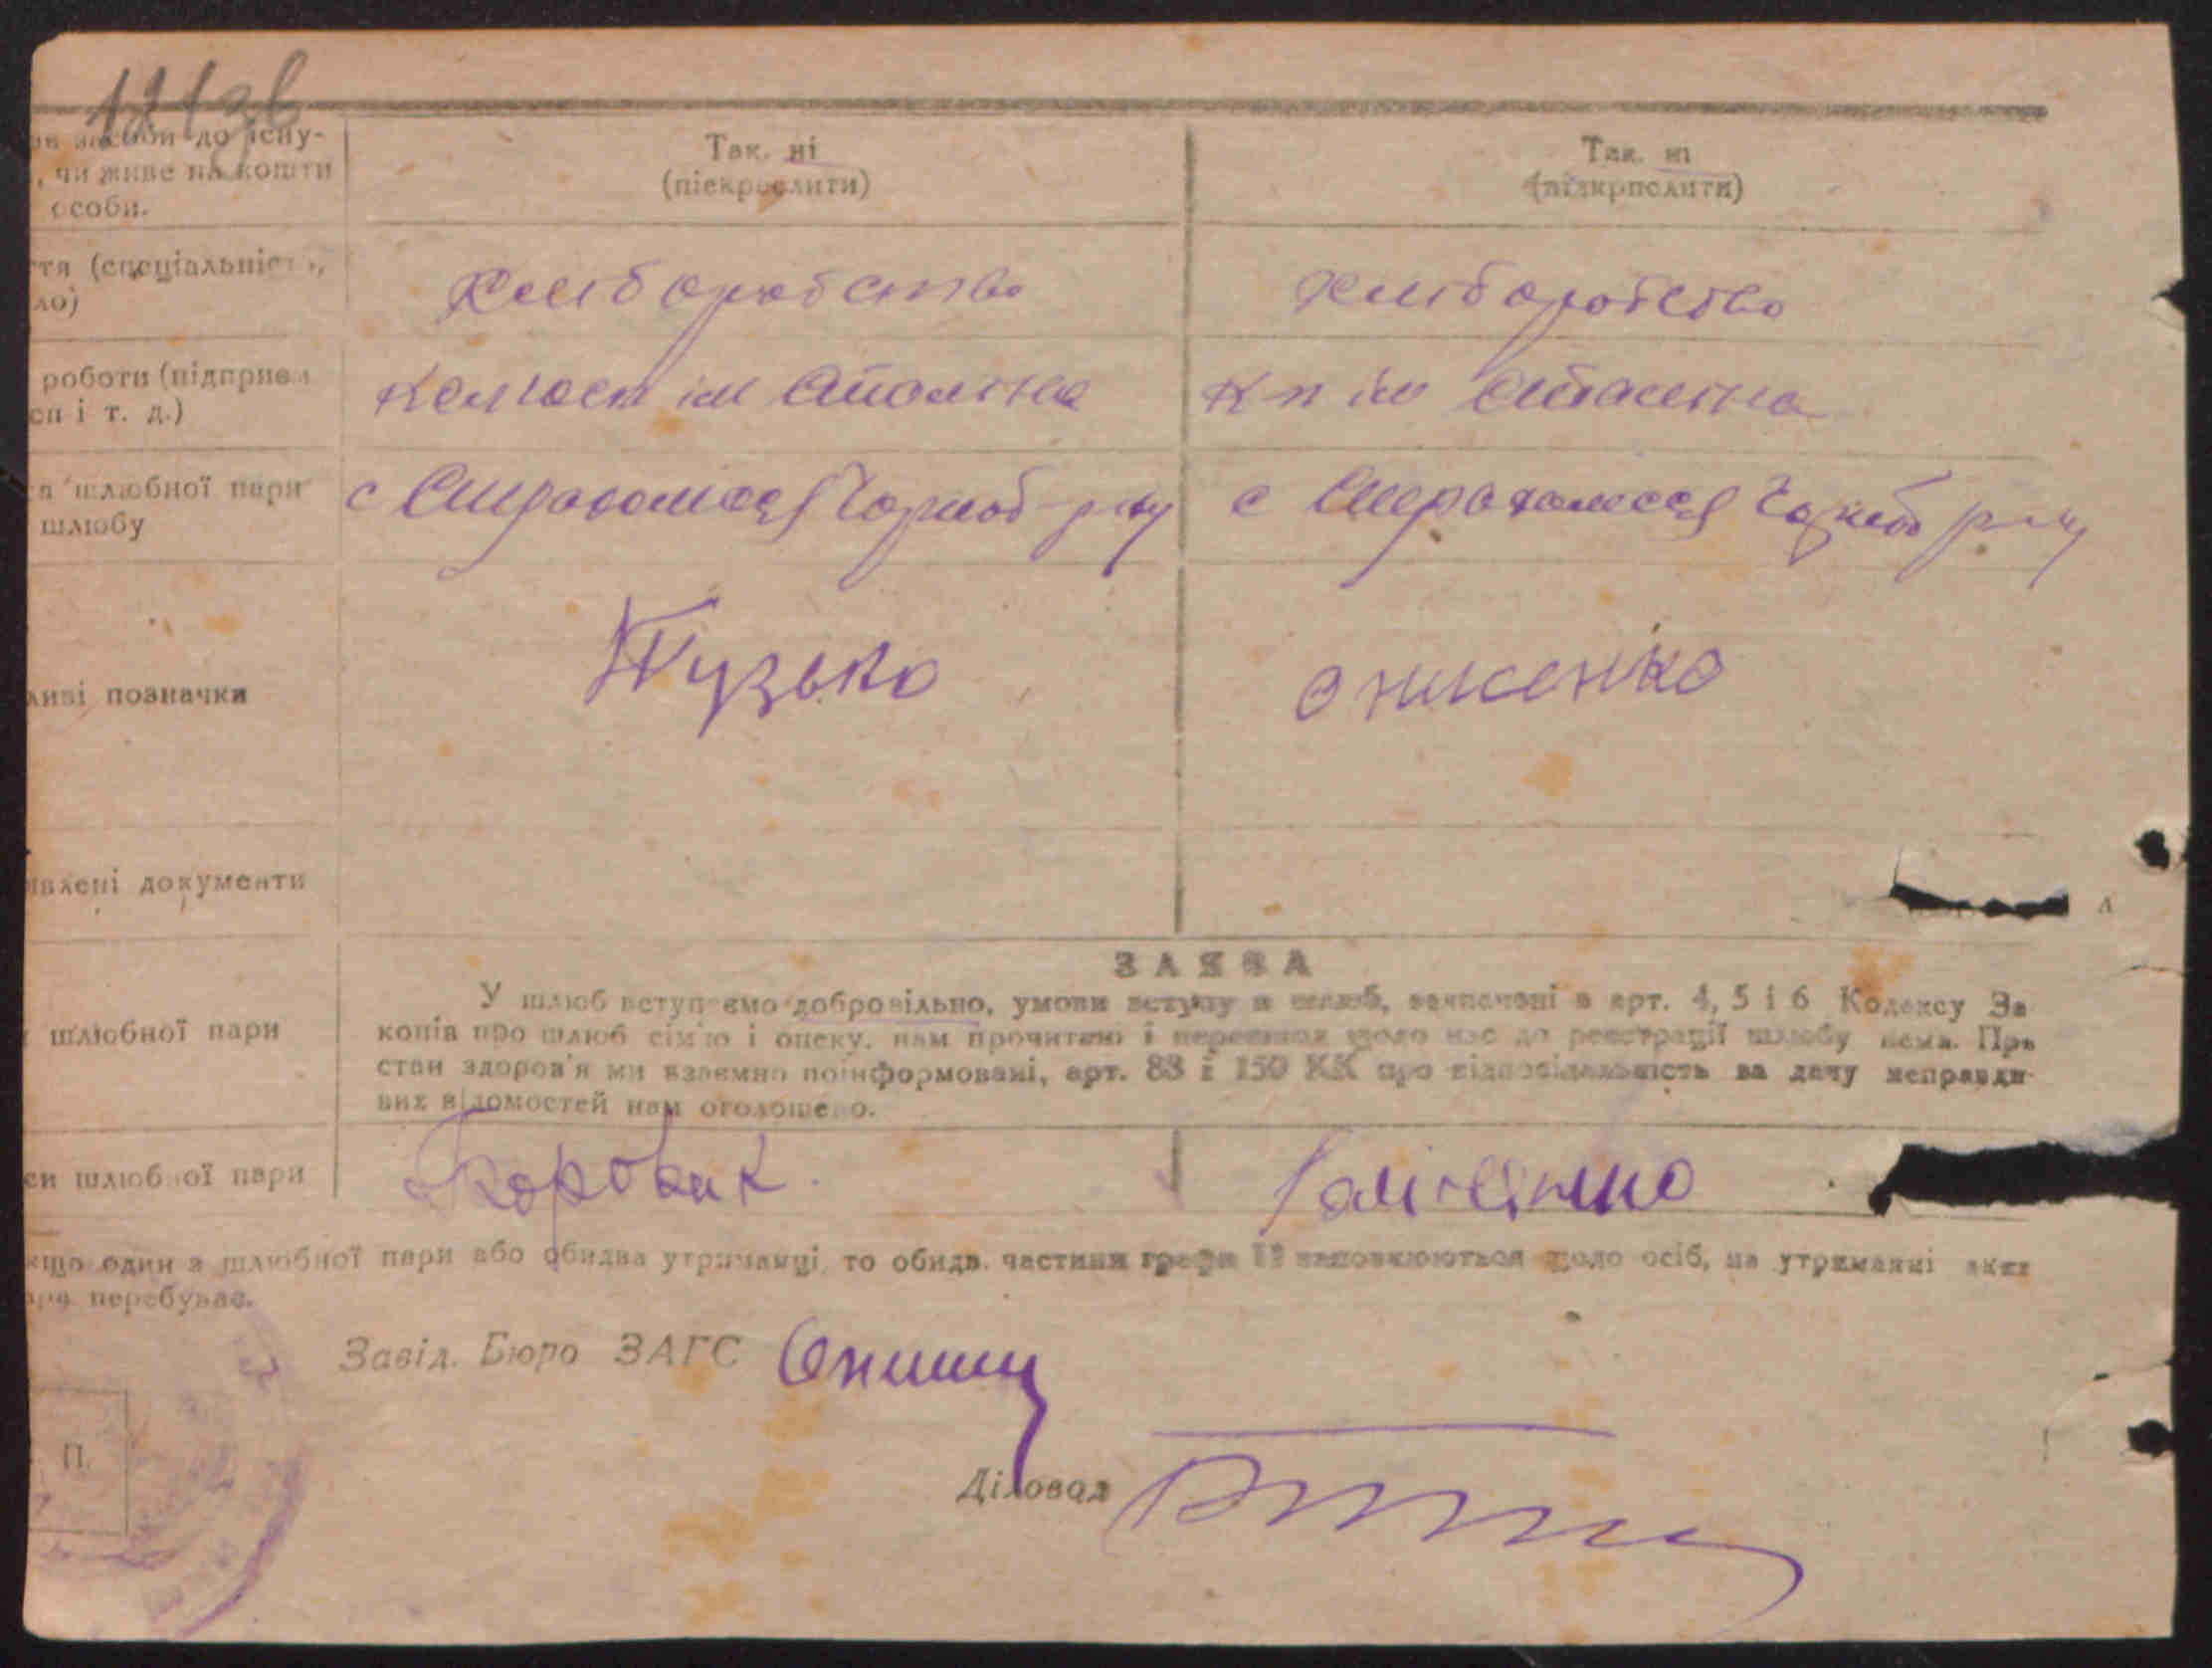 засоби до існу-
, чи живе на кошти
особи.
Так. ні
(підкреслити)
Так. ні
(підкреслити)
ття (спеціальність,
ло)
Хліборобство
Хліборобство
роботи (підприєм
і т. д.)
Колгосп ім Сталіна
К-п ім Сталіна
шлюбної пари
шлюбу
с Страхолісся Чорноб р-ну
с Страхолісся Чорноб р-ну
ливі позначки
Пузько
Онисенко
явлені документи
ЗАЯВА
шлюбної пари
У шлюб вступаємо добровільно, умови вступу в шлюб, зазначені в арт. 4, 5 і 6 Кодексу За
конів про шлюб сім'ю і опеку, нам прочитано і перешкод щодо нас до реєстрації шлюбу нема. Про
стан здоров'я ми взаємно поінформовані, арт. 88 і 150 КК про відповідальність за дачу неправди-
вих відомостей нам оголошено.
си шлюбної пари
Коровик.
кщо один з шлюбної пари або обидва утриманці, то обидв. частини графи 11 заповнюються щодо осіб, на утриманні яких
перебуває.
Завід. Бюро ЗАГС
П.
Діловод